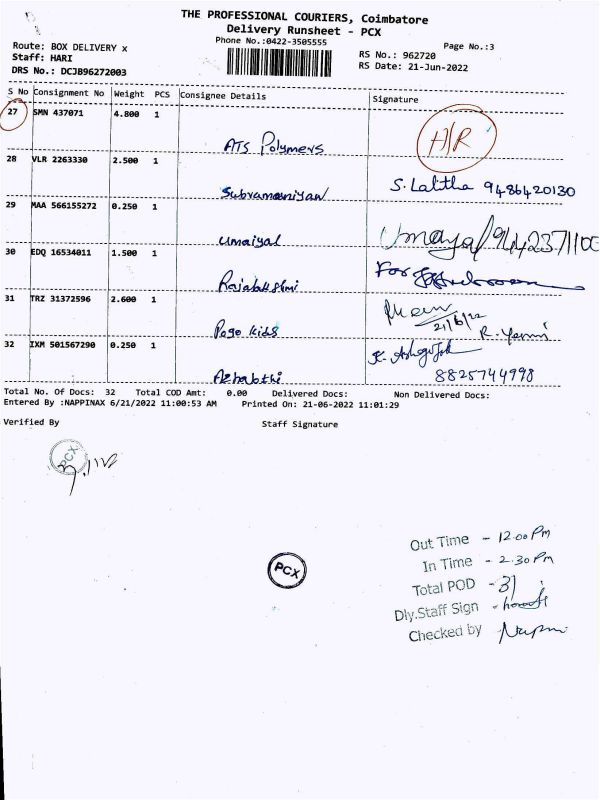 THE PROFESSIONAL COURIERS, Coimbatore
Delivery Runsheet - PCX
Phone No.:0422-3505555
Page No.:3
Route: BOX DELIVERY x
Staff: HARI
DRS No.: DCJB96272003
RS No.: 962720
RS Date: 21-Jun-2022
S No Consignment No Weight PCS Consignee Details Signature
27 SMN 437071 4.800 1
ATS Polymers H/R
28 VLR 2263330 2.500 1
Subramaniyan S. Lalitha 9486420130
29 MAA 566155272 0.250 1
Umaiyal
30 EDQ 16534011 1.500 1
Rajalakshmi For
31 TRZ 31372596 2.600 1
21/6/22
Pogo kids
32 IXM 501567290 0.250 1
8825744998
Total No. Of Docs: 32 Total COD Amt: 0.00 Delivered Docs: Non Delivered Docs:
Entered By :NAPPINAX 6/21/2022 11:00:53 AM Printed On: 21-06-2022 11:01:29
Verified By Staff Signature
PCX
PCX
Out Time - 12.00 Pm
In Time - 2.30 Pm
Total POD - 31
Dly.Staff Sign
Checked by